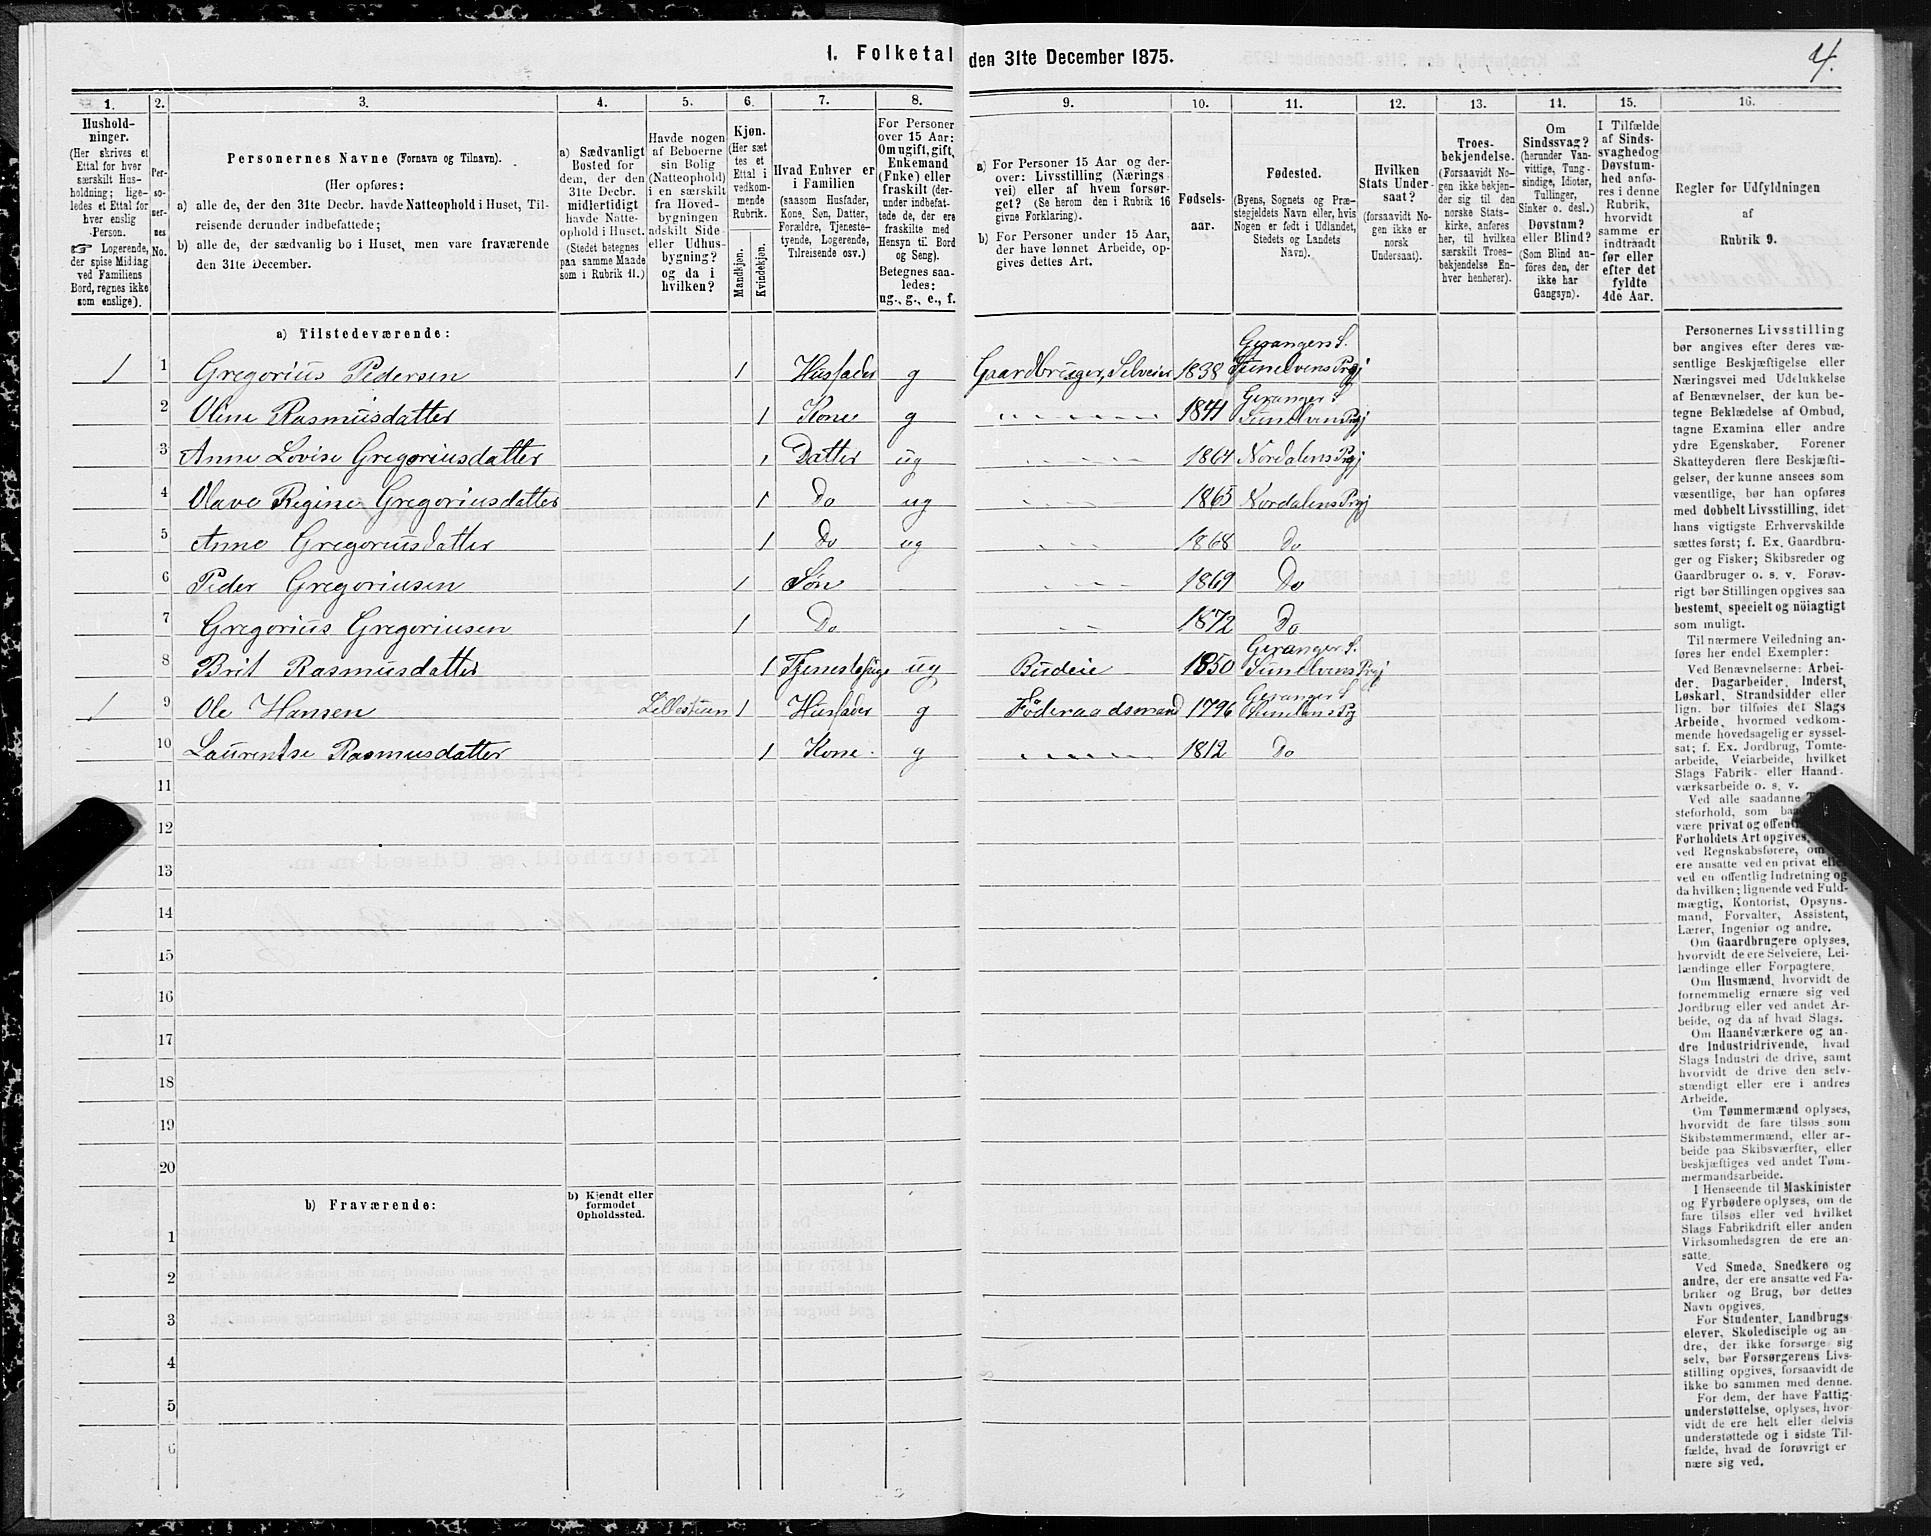 1. Folketal den 31te December 1875.
4.
1.
2.
3.
4.
5.
6.
7.
8.
9.
10.
11.
12.
13.
14.
15.
16.
Hushold-
ninger.
(Her skrives et
Ettal for hver
særskilt Hus-
holdning; lige-
ledes et Ettal for
hver enslig
Person.
☞ Logerende,
der spise Middag
ved Familiens
Bord, regnes ikke
som enslige).
Per-
so-
ner-
nes
No.
Personernes Navne (Fornavn og Tilnavn).
(Her opføres:
a) alle de, der den 31te Decbr. havde Natteophold i Huset, Til-
reisende derunder indbefattede;
b) alle de, der sædvanlig bo i Huset, men vare fraværende
den 31te December.
a) Sædvanligt
Bosted for
dem, der den
31te Decbr.
midlertidigt
havde Natte-
ophold i Huset.
(Stedet betegnes
paa samme Maade
som i Rubrik 11.)
Havde nogen
af Beboerne
sin Bolig
(Natteophold)
i en særskilt
fra Hoved-
bygningen
adskilt Side-
eller Udhus-
bygning?
og da i
hvilken?
Kjøn.
(Her sæt-
tes et
Ettal i
vedkom-
mende
Rubrik.
Mandkjøn.
Kvindekjøn.
Hvad Enhver er
i Familien
(saasom Husfader,
Kone, Søn, Datter,
Forældre, Tjeneste-
tyende, Logerende,
Tilreisende osv.)
For Personer
over 15 Aar:
Om ugift, gift,
Enkemand
(Enke) eller
fraskilt (der-
under indbefat-
tede de, der ere
fraskilte med
Hensyn til Bord
og Seng).
Betegnes saa-
ledes:
ug., g., e., f.
a) For Personer 15 Aar og der-
over: Livsstilling (Nærings-
vei) eller af hvem forsør-
get? (Se herom den i Rubrik 16
givne Forklaring).
b) For Personer under 15 Aar,
der have lønnet Arbeide, op-
gives dettes Art.
Fødsels-
aar.
Fødested.
(Byens, Sognets og Præ-
stegjeldets Navn eller, hvis
Nogen er født i Udlandet,
Stedets og Landets
Navn).
Hvilken
Stats Under-
saat?
(forsaavidt No-
gen ikke er
norsk
Undersaat).
Troes-
bekjendelse.
(Forsaavidt No-
gen ikke bekjen-
der sig til den
norske Stats-
kirke, anføres
her, til hvilken
særskilt Troes-
bekjendelse En-
hver henhører).
Om
Sindssvag?
(herunder Van-
vittige, Tung-
sindige, Idioter,
Tullinger,
Sinker o. desl.)
Døvstum?
eller Blind?
(Som Blind an-
føres den, der
ikke har
Gangsyn).
I Tilfælde
af Sinds-
svaghed og
Døvstum-
hed anfø-
res i denne
Rubrik,
hvorvidt
samme er
indtraadt
før eller
efter det
fyldte
4de Aar.
Regler for Udfyldningen
af
Rubrik 9.
a) Tilstedeværende:
1 1 Gregorius Pedersen 1 Husfader g Gaardbruger, Selveier 1838 Gerangers S. Sunelvens Prgj
2 Oline Rasmusdatter 1 Kone g 1841 Geranger S Sunelvens Prgj
3 Anne Lovise Gregoriusdatter 1 Datter ug 1864 Nordalens Prgj
4 Olave Regine Gregoriusdatter 1 Do ug 1865 Nordalens Prgj
5 Anne Gregoriusdatter 1 Do ug 1868 Do
6 Peder Gregoriusen 1 Søn 1869 Do
7 Gregorius Gregoriusen 1 Do 1872 Do
8 Brit Rasmusdatter 1 Tjenestepige ug Budeie 1850 Geranger S. Sunelvens Prgj
1 9 Ole Hansen Lillestuen 1 Husfader g Føderaadsmand 1796 Geranger S Sunelvens Prg
10 Laurentse Rasmusdatter 1 Kone g 1812 Do
11
12
13
14
15
16
17
18
19
20
b) Fraværende:
b) Kjendt eller
formodet
Opholdssted.
1
2
3
4
5
6
Personernes Livsstilling
bør angives efter deres væ-
sentlige Beskjæftigelse eller
Næringsvei med Udelukkelse
af Benævnelser, der kun be-
tegne Beklædelse af Ombud,
tagne Examina eller andre
ydre Egenskaber. Forener
Skatteyderen flere Beskjæfti-
gelser, der kunne ansees som
væsentlige, bør han opføres
med dobbelt Livsstilling, idet
hans vigtigste Erhvervskilde
sættes først; f. Ex. Gaardbru-
ger og Fisker; Skibsreder og
Gaardbruger o. s. v. Forøv-
rigt bør Stillingen opgives saa
bestemt, specielt og nöiagtigt
som muligt.
Til nærmere Veiledning an-
føres her endel Exempler:
Ved Benævnelserne: Arbei-
der, Dagarbeider, Inderst,
Løskarl, Strandsidder eller
lign. bør tilføies det Slags
Arbeide, hvormed vedkom-
mende hovedsagelig er syssel-
sat; f. Ex. Jordbrug, Tomte-
arbeide, Veiarbeide, hvilket
Slags Fabrik- eller Haand-
værksarbeide o. s. v.
Ved alle saadanne
steforhold, som
være privat og
Forholdets Art opgives,
ved Regnskabsførere,
ere ansatte ved en privat eller
ved en offentlig Indretning og
da hvilken; lignende ved Fuld-
mægtig, Kontorist, Opsyns-
mand, Forvalter, Assistent,
Lærer, Ingeniør og andre.
Om Gaardbrugere oplyses,
hvorvidt de ere Selveiere, Lei-
lændinge eller Forpagtere.
Om Husmænd, hvorvidt de
fornemmelig ernære sig ved
Jordbrug eller ved andet Ar-
beide, og da af hvad Slags.
Om Haandværkere og an-
dre Industridrivende, hvad
Slags Industri de drive, samt
hvorvidt de drive den selv-
stændigt eller ere i andres
Arbeide.
Om Tømmermænd oplyses,
hvorvidt de fare tilsøs som
Skibstømmermænd, eller ar-
beide paa Skibsværfter, eller
beskjæftiges ved andet Tøm-
mermandsarbeide.
I Henseende til Maskinister
og Fyrbødere oplyses, om de
fare tilsøs eller ved hvilket
Slags Fabrikdrift eller anden
Virksomhedsgren de ere an-
satte.
Ved Smede, Snedkere og
andre, der ere ansatte ved Fa-
briker og Brug, bør dettes
Navn opgives.
For Studenter, Landbrugs-
elever, Skoledisciple og an-
dre, der ikke forsørge sig
selv, bør Forsørgerens Livs-
stilling opgives, forsaavidt de
ikke bo sammen med denne.
For dem, der have Fattig-
understøttelse, oplyses, hvor-
vidt de ere helt eller delvis
understøttede og i sidste Til-
fælde, hvad de forøvrigt er
nære sig ved.